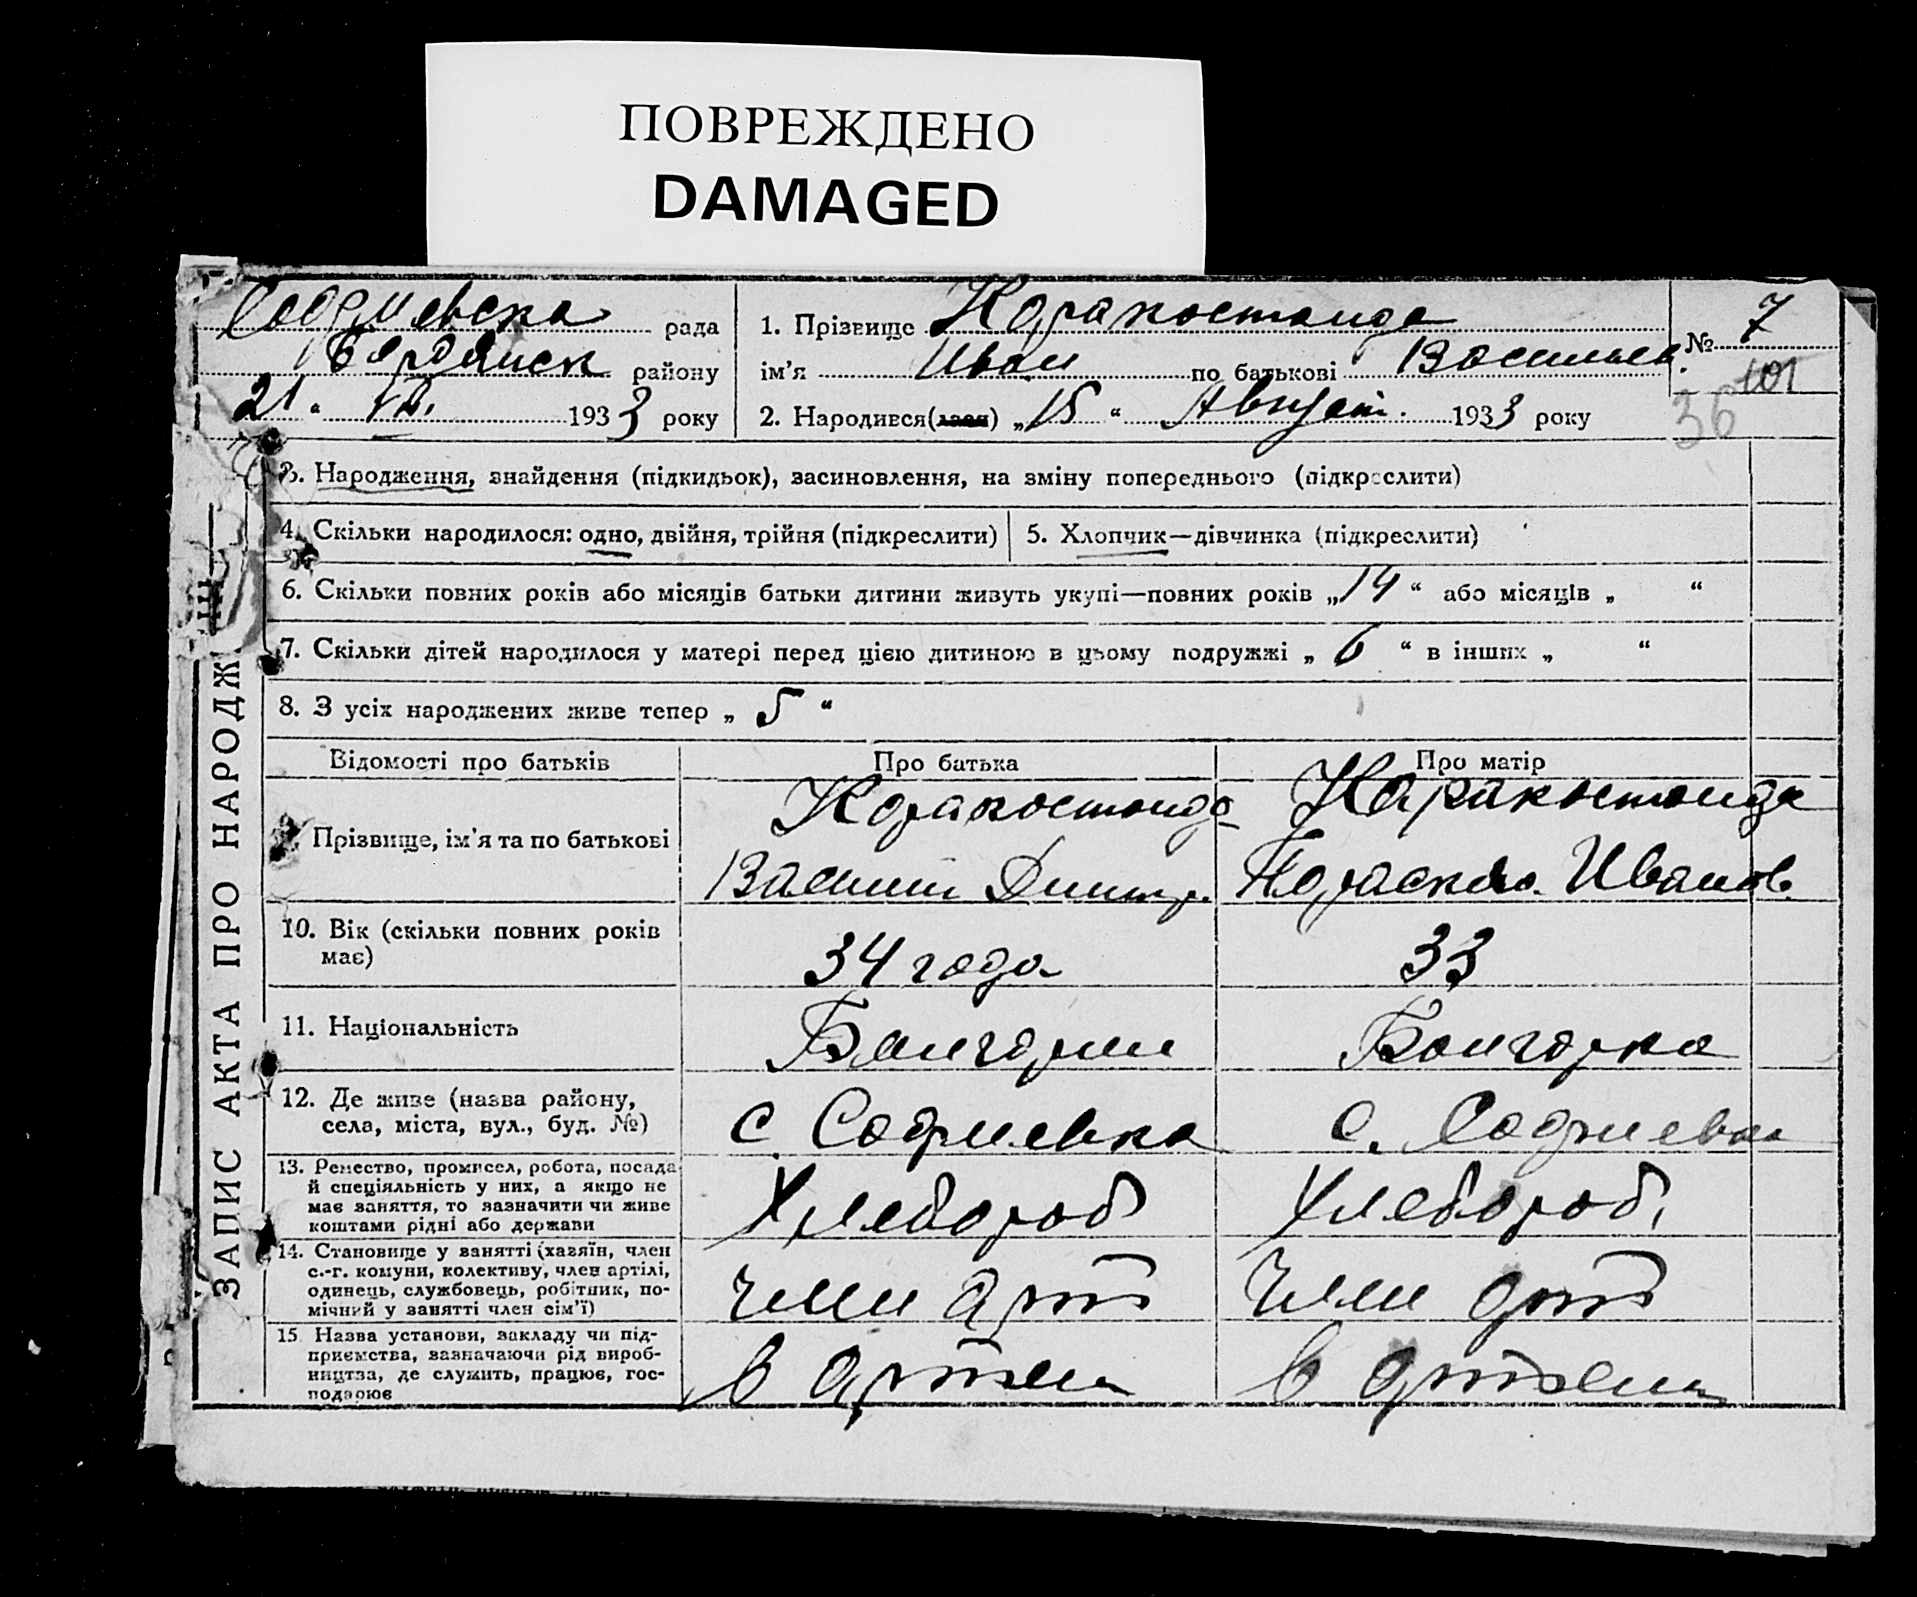 ПОВРЕЖДЕНО
DAMAGED
Софиевска рада
Бердянск району
21 " 193 3 року
1. Прізвище Каракостанда
ім'я Иван по батькові Васильев.
2. Народився(лася) „ 15 “ Август. 193 3 року
№ 7
101
36
3. Народження, знайдення (підкидьок), засиновлення, на зміну попереднього (підкреслити)
4. Скільки народилося: одно, двійня, трійня (підкреслити)
5. Хлопчик—дівчинка (підкреслити)
6. Скільки повних років або місяців батьки дитини живуть укупі—повних років „ 14 “ або місяців „ “
7. Скільки дітей народилося у матері перед цією дитиною в цьому подружжі „ 6 “ в інших „ “
8. З усіх народжених живе тепер „ 5 “
ЗАПИС АКТА ПРО НАРОДЖ
Відомості про батьків
Про батька
Про матір
Прізвище, ім'я та по батькові
Каракостанда
Василий Дмитр.
Каракостанда
Параскева Иванов.
10. Вік (скільки повних років
має)
34 года
33
11. Національність
Балгарин
Болгарка
12. Де живе (назва району,
села, міста, вул., буд. №)
с. Софиевка
с. Софиевка
13. Ремество, промисел, робота, посада
й спеціяльність у них, а якщо не
має заняття, то зазначити чи живе
коштами рідні або держави
Хлебороб
Хлебороб,
14. Становище у занятті (хазяїн, член
с.-г. комуни, колективу, член артілі,
одинець, службовець, робітник, по-
мічний у занятті член сім'ї)
член арт
член арт
15 Назва установи, закладу чи під-
приємства, зазначаючи рід вироб-
ництва, де служить, працює, гос-
подарює
в артели
в артели